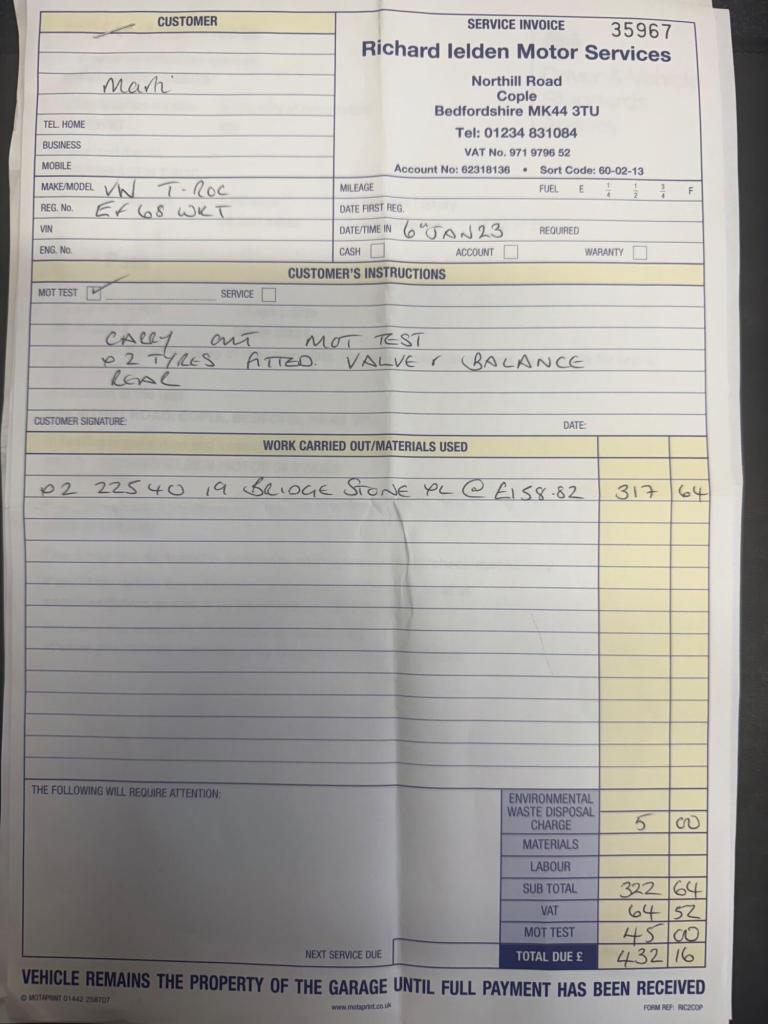 CUSTOMER
Mark
TEL. HOME
BUSINESS
MOBILE
MAKE/MODEL VW T-ROC
REG. No. EF68 WKT
VIN
ENG. No.
SERVICE INVOICE 35967
Richard Ielden Motor Services
Northill Road
Cople
Bedfordshire MK44 3TU
Tel: 01234 831084
VAT No. 971 9796 52
Account No: 62318136 • Sort Code: 60-02-13
MILEAGE FUEL E 1/4 1/2 3/4 F
DATE FIRST REG.
DATE/TIME IN 6th JAN 23 REQUIRED
CASH ACCOUNT WARANTY
CUSTOMER'S INSTRUCTIONS
MOT TEST SERVICE
CARRY OUT MOT TEST
2 TYRES FITTED. VALVE & BALANCE
REAR
CUSTOMER SIGNATURE: DATE:
WORK CARRIED OUT/MATERIALS USED
2 225 40 19 BRIDGE STONE XL @ £158.82 317 64
THE FOLLOWING WILL REQUIRE ATTENTION:
ENVIRONMENTAL
WASTE DISPOSAL
CHARGE 5 00
MATERIALS
LABOUR
SUB TOTAL 322 64
VAT 64 52
MOT TEST 45 00
NEXT SERVICE DUE TOTAL DUE £ 432 16
VEHICLE REMAINS THE PROPERTY OF THE GARAGE UNTIL FULL PAYMENT HAS BEEN RECEIVED
© MOTAPRINT 01442 258707 www.motaprint.co.uk FORM REF: RIC2COP